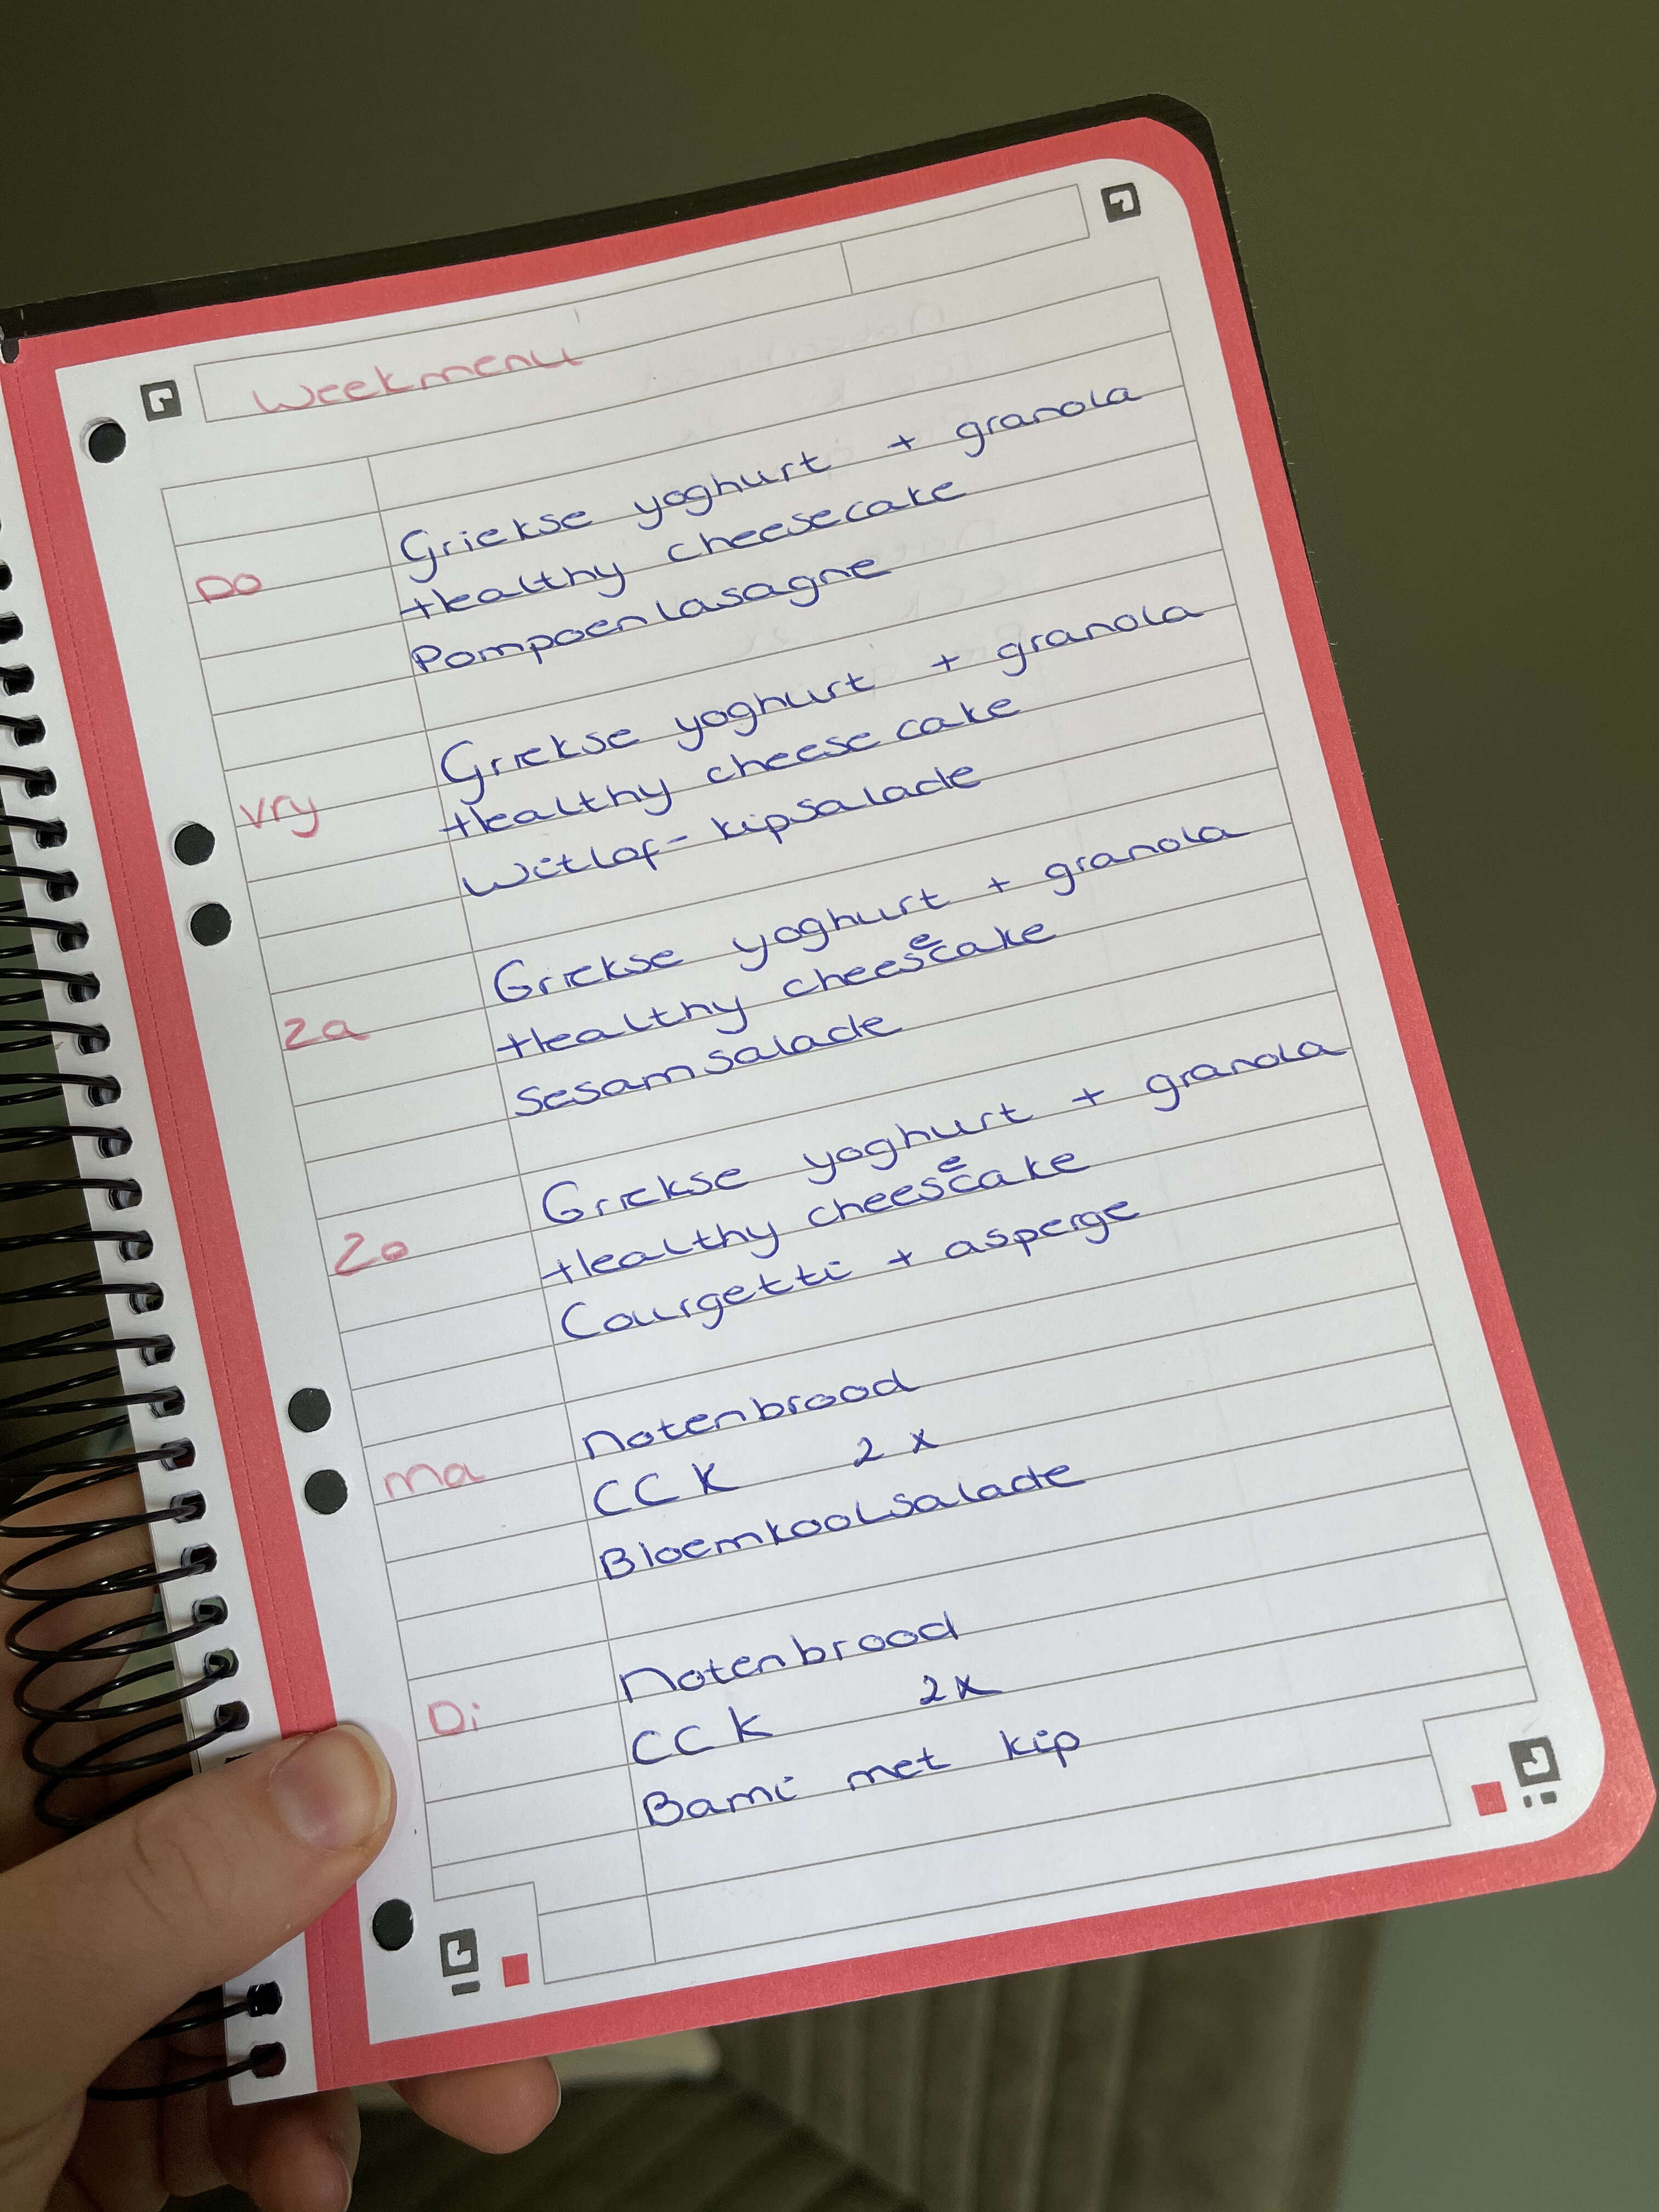 Weekmenu
Do Griekse yoghurt + granola
Healthy cheesecake
Pompoenlasagne
Vry Griekse yoghurt + granola
Healthy cheesecake
Witlof-kipsalade
Za Griekse yoghurt + granola
Healthy cheesecake
Sesamsalade
Zo Griekse yoghurt + granola
Healthy cheesecake
Courgetti + asperge
Ma Notenbrood
CCK 2x
Bloemkoolsalade
Di Notenbrood
CCK 2x
Bami met kip